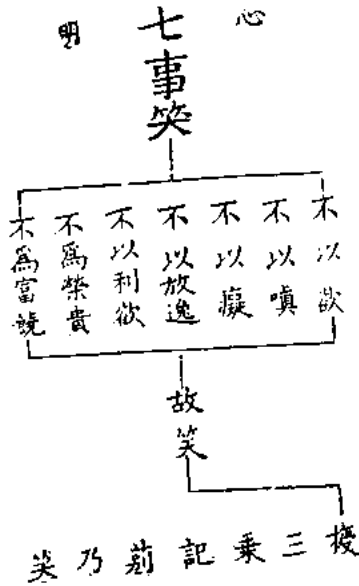 心
七事笑
明
不以欲
不以瞋
不以癡
不以放逸
不以利欲
不爲榮貴
不爲富饒
故笑
授三乘記莂乃笑